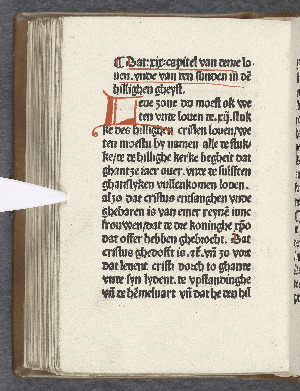 ¶ Dat .xix. capitel van deme lo-
uen. vnde van den sunden in dē
hillighen gheyst.
Leue sone du moest ok we-
ten vnte louen de .xij. stuk-
ke des hillighen cristen louen/we
ten moestu by namen alle de stuk-
ke/de de hillighe kerke begheit dat
ghantze iaer ouer. vnte de sulften
ghanslyken vullenkomen louen.
alzo dat cristus entfanghen vnde
ghebaren is van ener reyne iunc
frouwen/dat de dre koninghe xp̄o
dat offer hebben ghebrocht. Dat
cristus ghedofft is. ꝛc. vn̄ zo vort
dat leuent cristi dorch to ghante
vnte syn lydent. de vpstandinghe
vn̄ de hēmeluart vn̄ dat he den hil